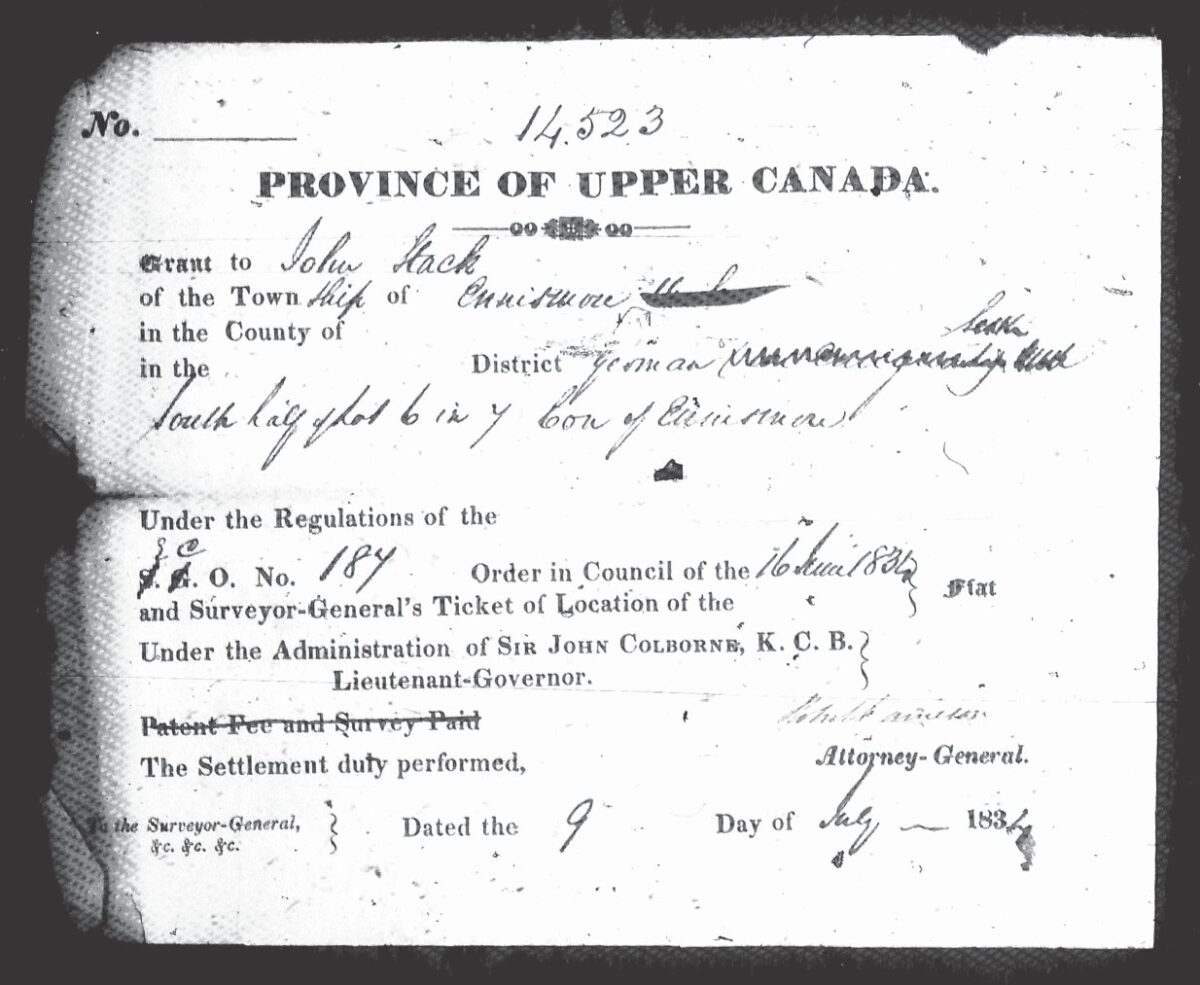 No. 14.523
PROVINCE OF UPPER CANADA.
Grant to John Stack
of the Town ship of Ennismore
in the County of
in the District Yeoman
South half of Lot 6 in 7 Con of Ennismore
Under the Regulations of the
O. No. 187 Order in Council of the 16 June 183
and Surveyor-General's Ticket of Location of the
Fiat
Under the Administration of SIR JOHN COLBORNE, K. C. B.
Lieutenant-Governor.
Patent Fee and Survey Paid
The Settlement duty performed,
Attorney-General.
To the Surveyor-General,
&c. &c. &c.
Dated the 9 Day of July 183